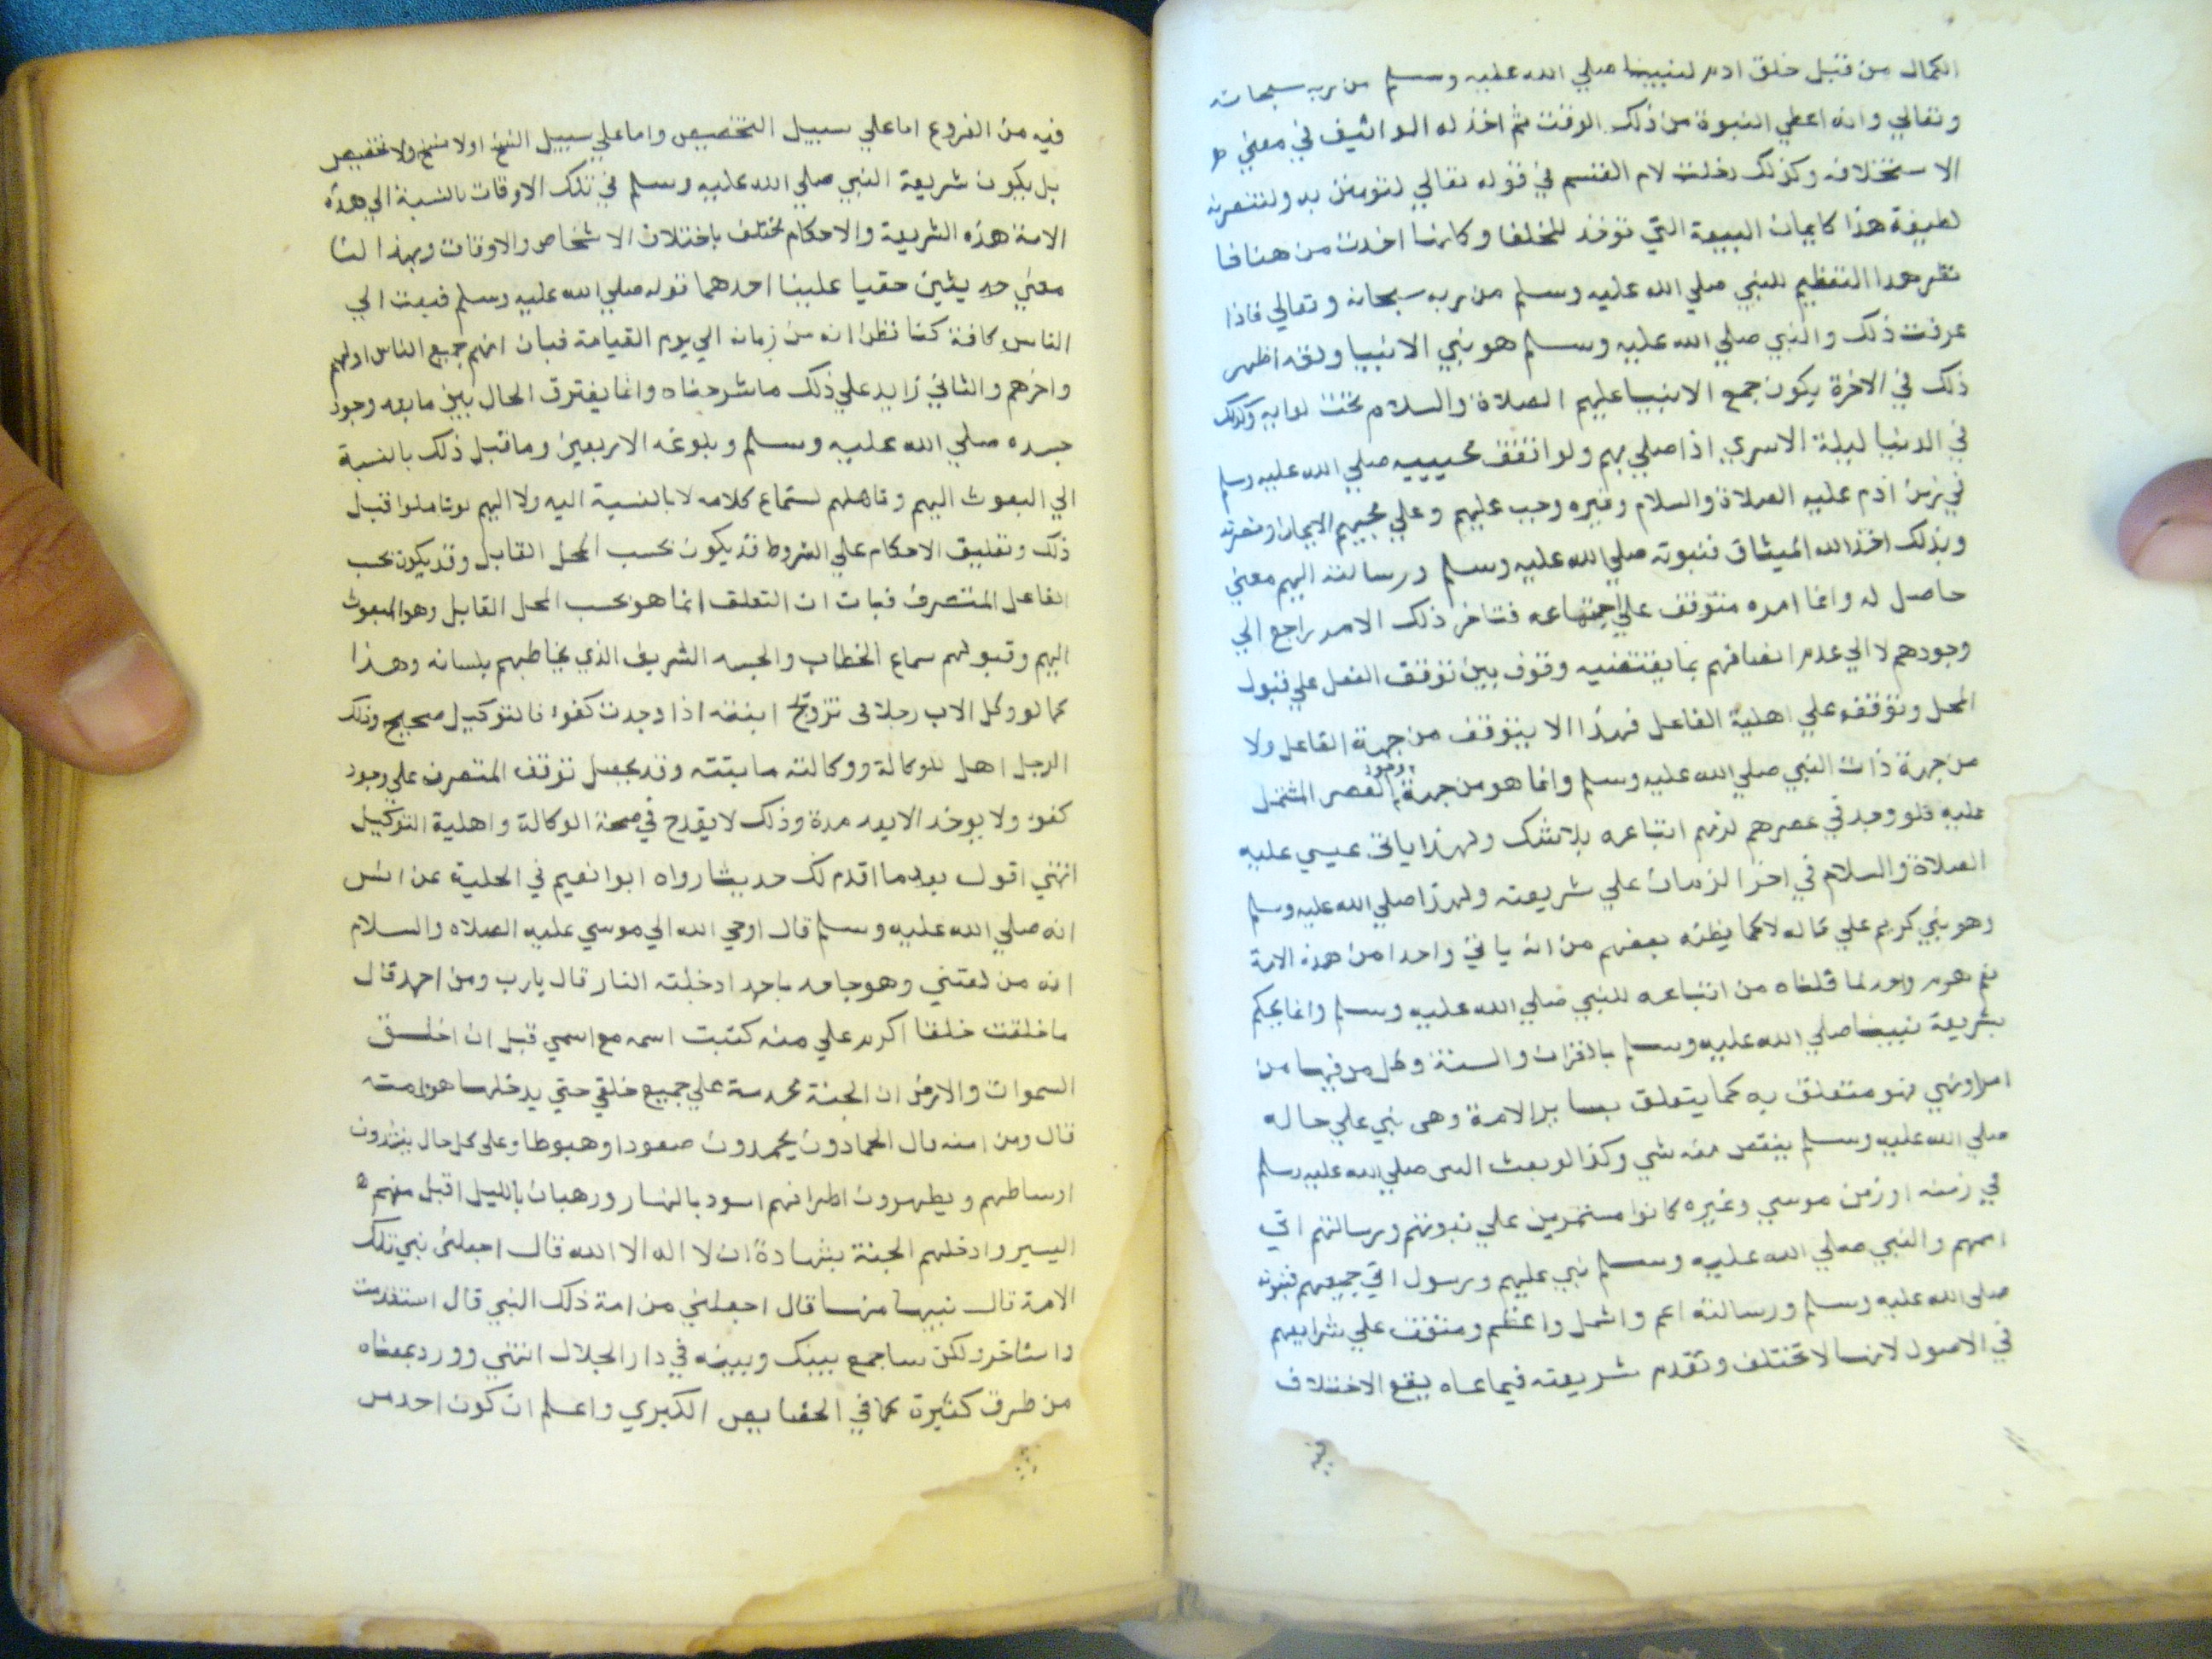 الكمال من قبل خلق ادم لنبينا صلي الله عليه وسلم من ربه سبحانه
وتعالي وانه اعطي النبوة من ذلك الوقت ثم اخذ له المواثيق في معني
الاستخلاف وكذلك دخلت لام القسم في قوله تعالي لتومنن به ولتنصرنه
لطيفة هذا كايمان البيعة التي توخذ للخلفا وكانها اخذت من هنا فا
نظر هذا التعظيم للنبي صلي الله عليه وسلم من ربه سبحانه وتعالي فاذا
عرفت ذلك والنبي صلي الله عليه وسلم هو نبي الانبيا ولقد اظهر
ذلك في الاخرة يكون جمع الانبيا عليهم الصلاة والسلام تحت لوايه وكذلك
في الدنيا ليلة الاسري اذا صلي بهم ولو اتفق مجييه صلي الله عليه وسلم
في زمن ادم عليه الصلاة والسلام وغيره وجب عليهم وعلي مجيهم الايمان ونصرته
وبذلك اخذ الله الميثاق فنبوته صلي الله عليه وسلم ورسالته اليهم معني
حاصل له وانما امره متوقف علي اجتماعه فتاخر ذلك الامر راجع الي
وجودهم لا الي عدم اتصافهم بما يقتضيه وقوف بين توقف الفعل علي قبول
المحل وتوقفه علي اهلية الفاعل فهذا الا يتوقف من جهة الفاعل ولا
من جهة ذات النبي صلي الله عليه وسلم وانما هو من جهة وجود العصر المشتمل
عليه فلو وجد في عصرهم لزمهم اتباعه بلا شك ولهذا ياتي عيسي عليه
الصلاة والسلام في اخر الزمان علي شريعته ولهذا صلي الله عليه وسلم
وهو نبي كريم علي حاله لا كما يظنه بعضهم من انه ياتي واحدا من هذه الامة
نعم هو واحد لما قلناه من اتباعه للنبي صلي الله عليه وسلم وانما يحكم
بشريعة نبينا صلي الله عليه وسلم بالقران والسنة وكل من فيها من
امر او نهي فهو متعلق به كما يتعلق بساير الامة وهو نبي علي حاله
صلي الله عليه وسلم ينقص منه شي وكذا لو بعث النبي صلي الله عليه وسلم
في زمنه او زمن موسي وغيره كانوا مستمرين علي نبوتهم ورسالتهم اتي
امهم والنبي صلي الله عليه وسلم نبي عليهم ورسول اتي جميعهم فنبوته
صلي الله عليه وسلم ورسالته اعم واشمل واعظم ومتفق علي شرايعهم
في الاصول لانها لا تختلف وتقدم شريعته فيما عساه يقع الاختلاف
فيه من الفروع اما علي سبيل التخصيص واما علي سبيل النسخ اولا نسخ ولا تخصيص
بل يكون شريعة النبي صلي الله عليه وسلم في تلك الاوقات بالنسبة الي هذه
الامة هذه الشريعة والاحكام تختلف باختلاف الاشخاص والاوقات وبهذا لنا
معني حديثين حقيا علينا احدهما قوله صلي الله عليه وسلم فبعت الي
الناس كافة كنا نظن انه من زمانه الي يوم القيامة فبان انهم جميع الناس اولهم
واخرهم والثاني زايد علي ذلك ما شرحناه وانما يفترق الحال بين ما بعد وجود
جسده صلي الله عليه وسلم وبلوغه الاربعين وما قبل ذلك بالنسبة
الي المبعوث اليهم وتاهلهم لستماع كلامه لا بالنسبة اليه ولا اليهم لو تاهلوا قبل
ذلك وتعليق الاحكام علي الشروط قد يكون بحسب المحل القابل وقد يكون بحسب
الفاعل المتصرف فبات ان التعلق انما هو بحسب المحل القابل وهو المبعوث
اليهم وقبولهم سماع الخطاب والجسد الشريف الذي يخاطبهم بلسانه وهذا
كما لو وكل الاب رجلا في تزويج ابنته اذا وجدت كفوا فالتوكيل صحيح وذلك
الرجل اهل للوكالة ووكالته مابتته وقد يحصل توقف المتصرف علي وجود
كفو ولا يوخد الا بعد مدة وذلك لا يقدح في صحة الوكالة واهلية التوكيل
انتهي اقول بعد ما اقدم لك حديثا رواه ابوا نعيم في الحلية عن انس
انه صلي الله عليه وسلم قال اوحي الله الي موسي عليه الصلاه والسلام
انه من لقتني وهو جاحد باحمد ادخلته النار قال يارب ومن احمد قال
ما خلقت خلقا اكرم علي منه كتبت اسمه مع اسمي قبل ان اخلق
السموات والارض ان الجنة محرمة علي جميع خلقي حتي يدخلها هو وامته
قال ومن امته قال الحمادون يحمدون صعودا وهبوطا وعلي كل حال يشدون
اوساطهم ويطهرون اطرافهم اسود بالنهار ورهبان بالليل اقبل منهم
اليسير وادخلهم الجنة بشهادة ان لا اله الا الله قال اجعلني نبي تلك
الامة قال نبيها منها قال اجعلني من امة ذلك النبي قال استقدمت
واستاخر ولكن ساجمع بينك وبينه في دار الجلال انتهي وورد بمعناه
من طرق كثيرة كما في الخصايص الكبري واعلم ان كون احد من